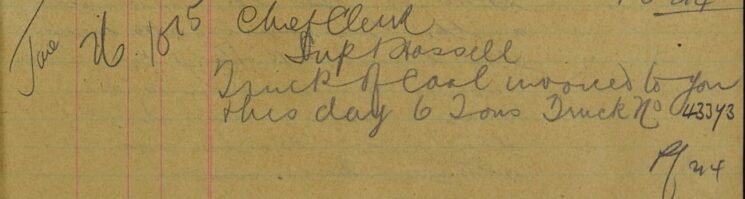 June 26 1015 Chief Clerk
Supt Hassell
Truck of Coal invoiced to you
this day 6 Tons Truck No 43393